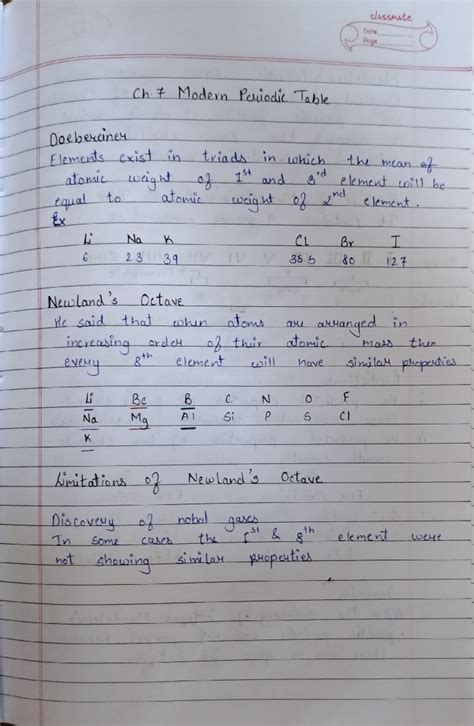 classmate
Date
Page
Ch 7 Modern Periodic Table
Doeberciner
Elements exist in triads in which the mean of
atomic weight of 1st and 3rd element will be
equal to atomic weight of 2nd element.
Ex
Li Na K Cl Br I
6 23 39 35.5 80 127
Newland's Octave
He said that when atoms are arranged in
increasing order of their atomic mass then
every 8th element will have similar properties
Li Be B C N O F
Na Mg Al Si P S Cl
K
Limitations of Newland's Octave
Discovery of nobal gases
In some cases the 1st & 8th element were
not showing similar properties